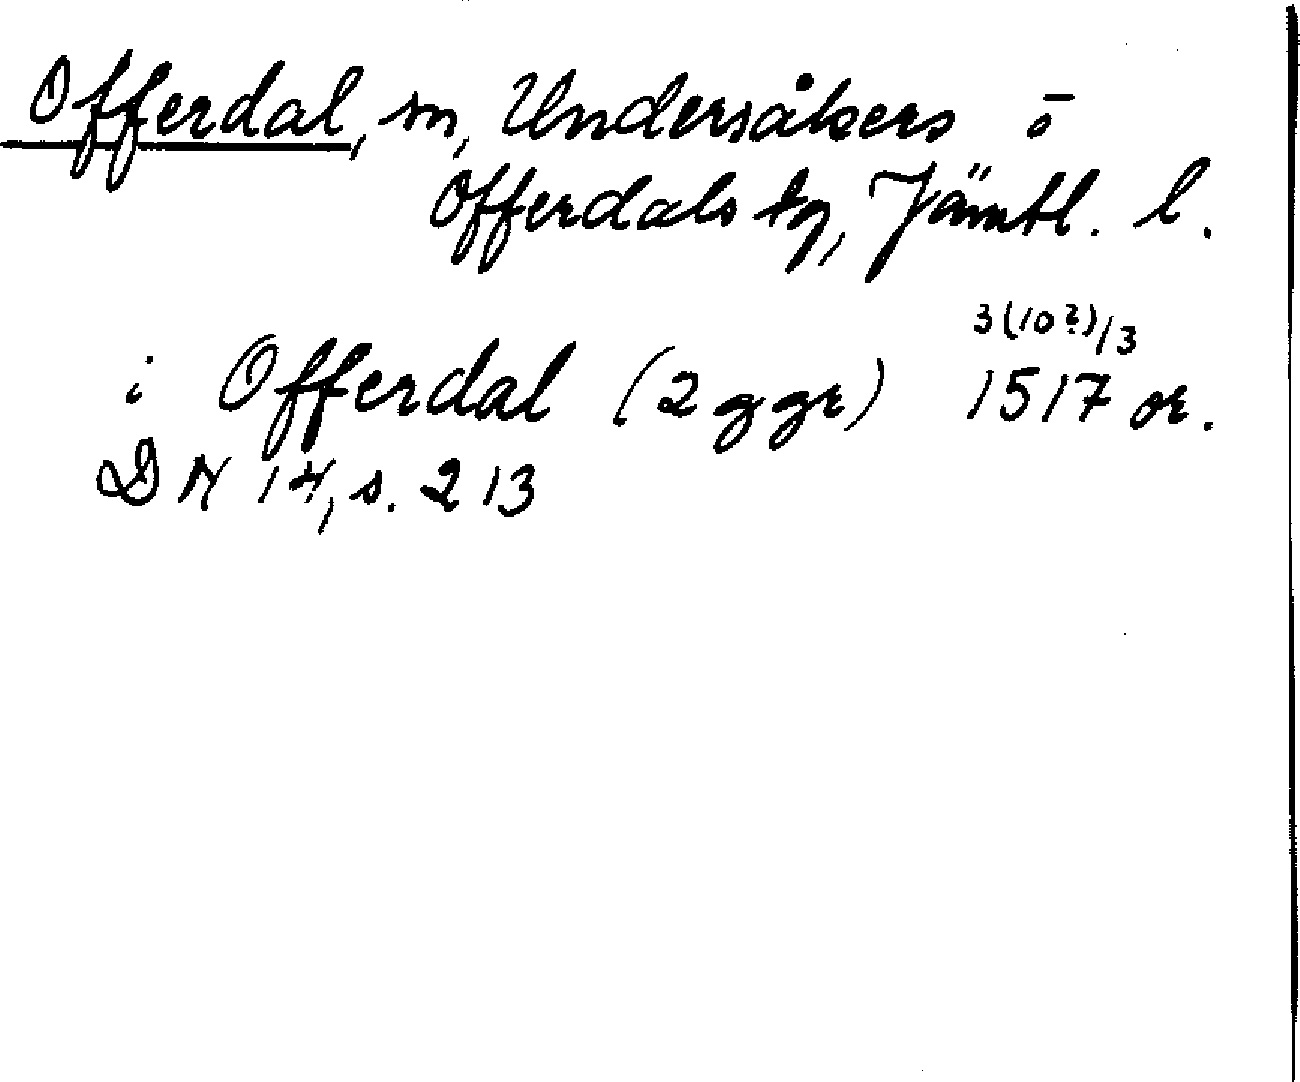 Offerdal, sn, Undersåkers o
Offerdals tg, Jämtl. l.
3(10?)/3
i Offerdal (2 ggr) 1517 or.
DN 14, s. 213